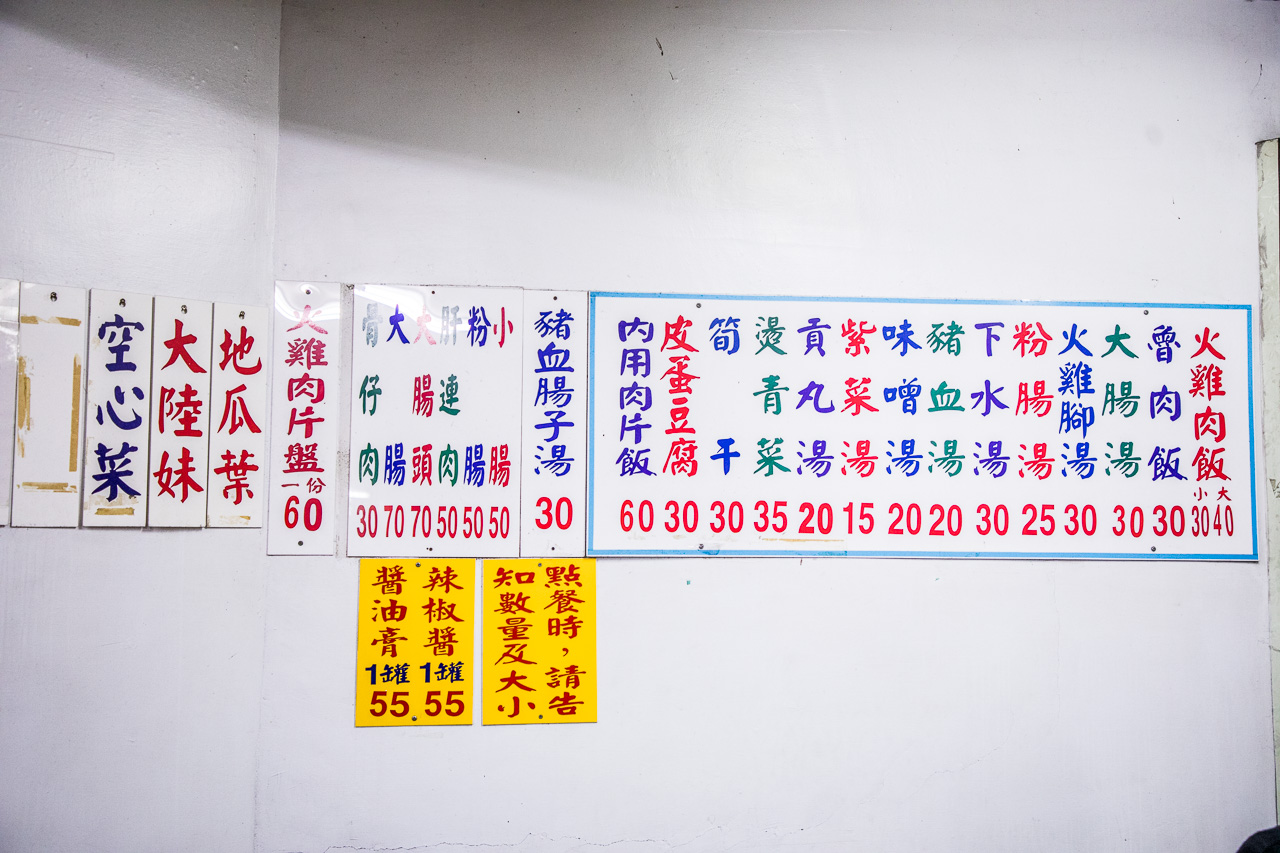 火雞肉飯 小30 大40
魯肉飯 30
大腸湯 30
火雞腳湯 30
粉腸湯 25
下水湯 30
豬血湯 20
味噌湯 20
紫菜湯 15
貢丸湯 20
燙青菜 35
筍干 30
皮蛋豆腐 30
內用肉片飯 60
豬血腸子湯 30
小腸 50
粉腸 50
肝連肉 50
大腸頭 70
大腸 70
骨仔肉 30
火雞肉片盤 一份 60
地瓜葉
大陸妹
空心菜
點餐時，請告
知數量及大小
辣椒醬 1罐 55
醬油膏 1罐 55